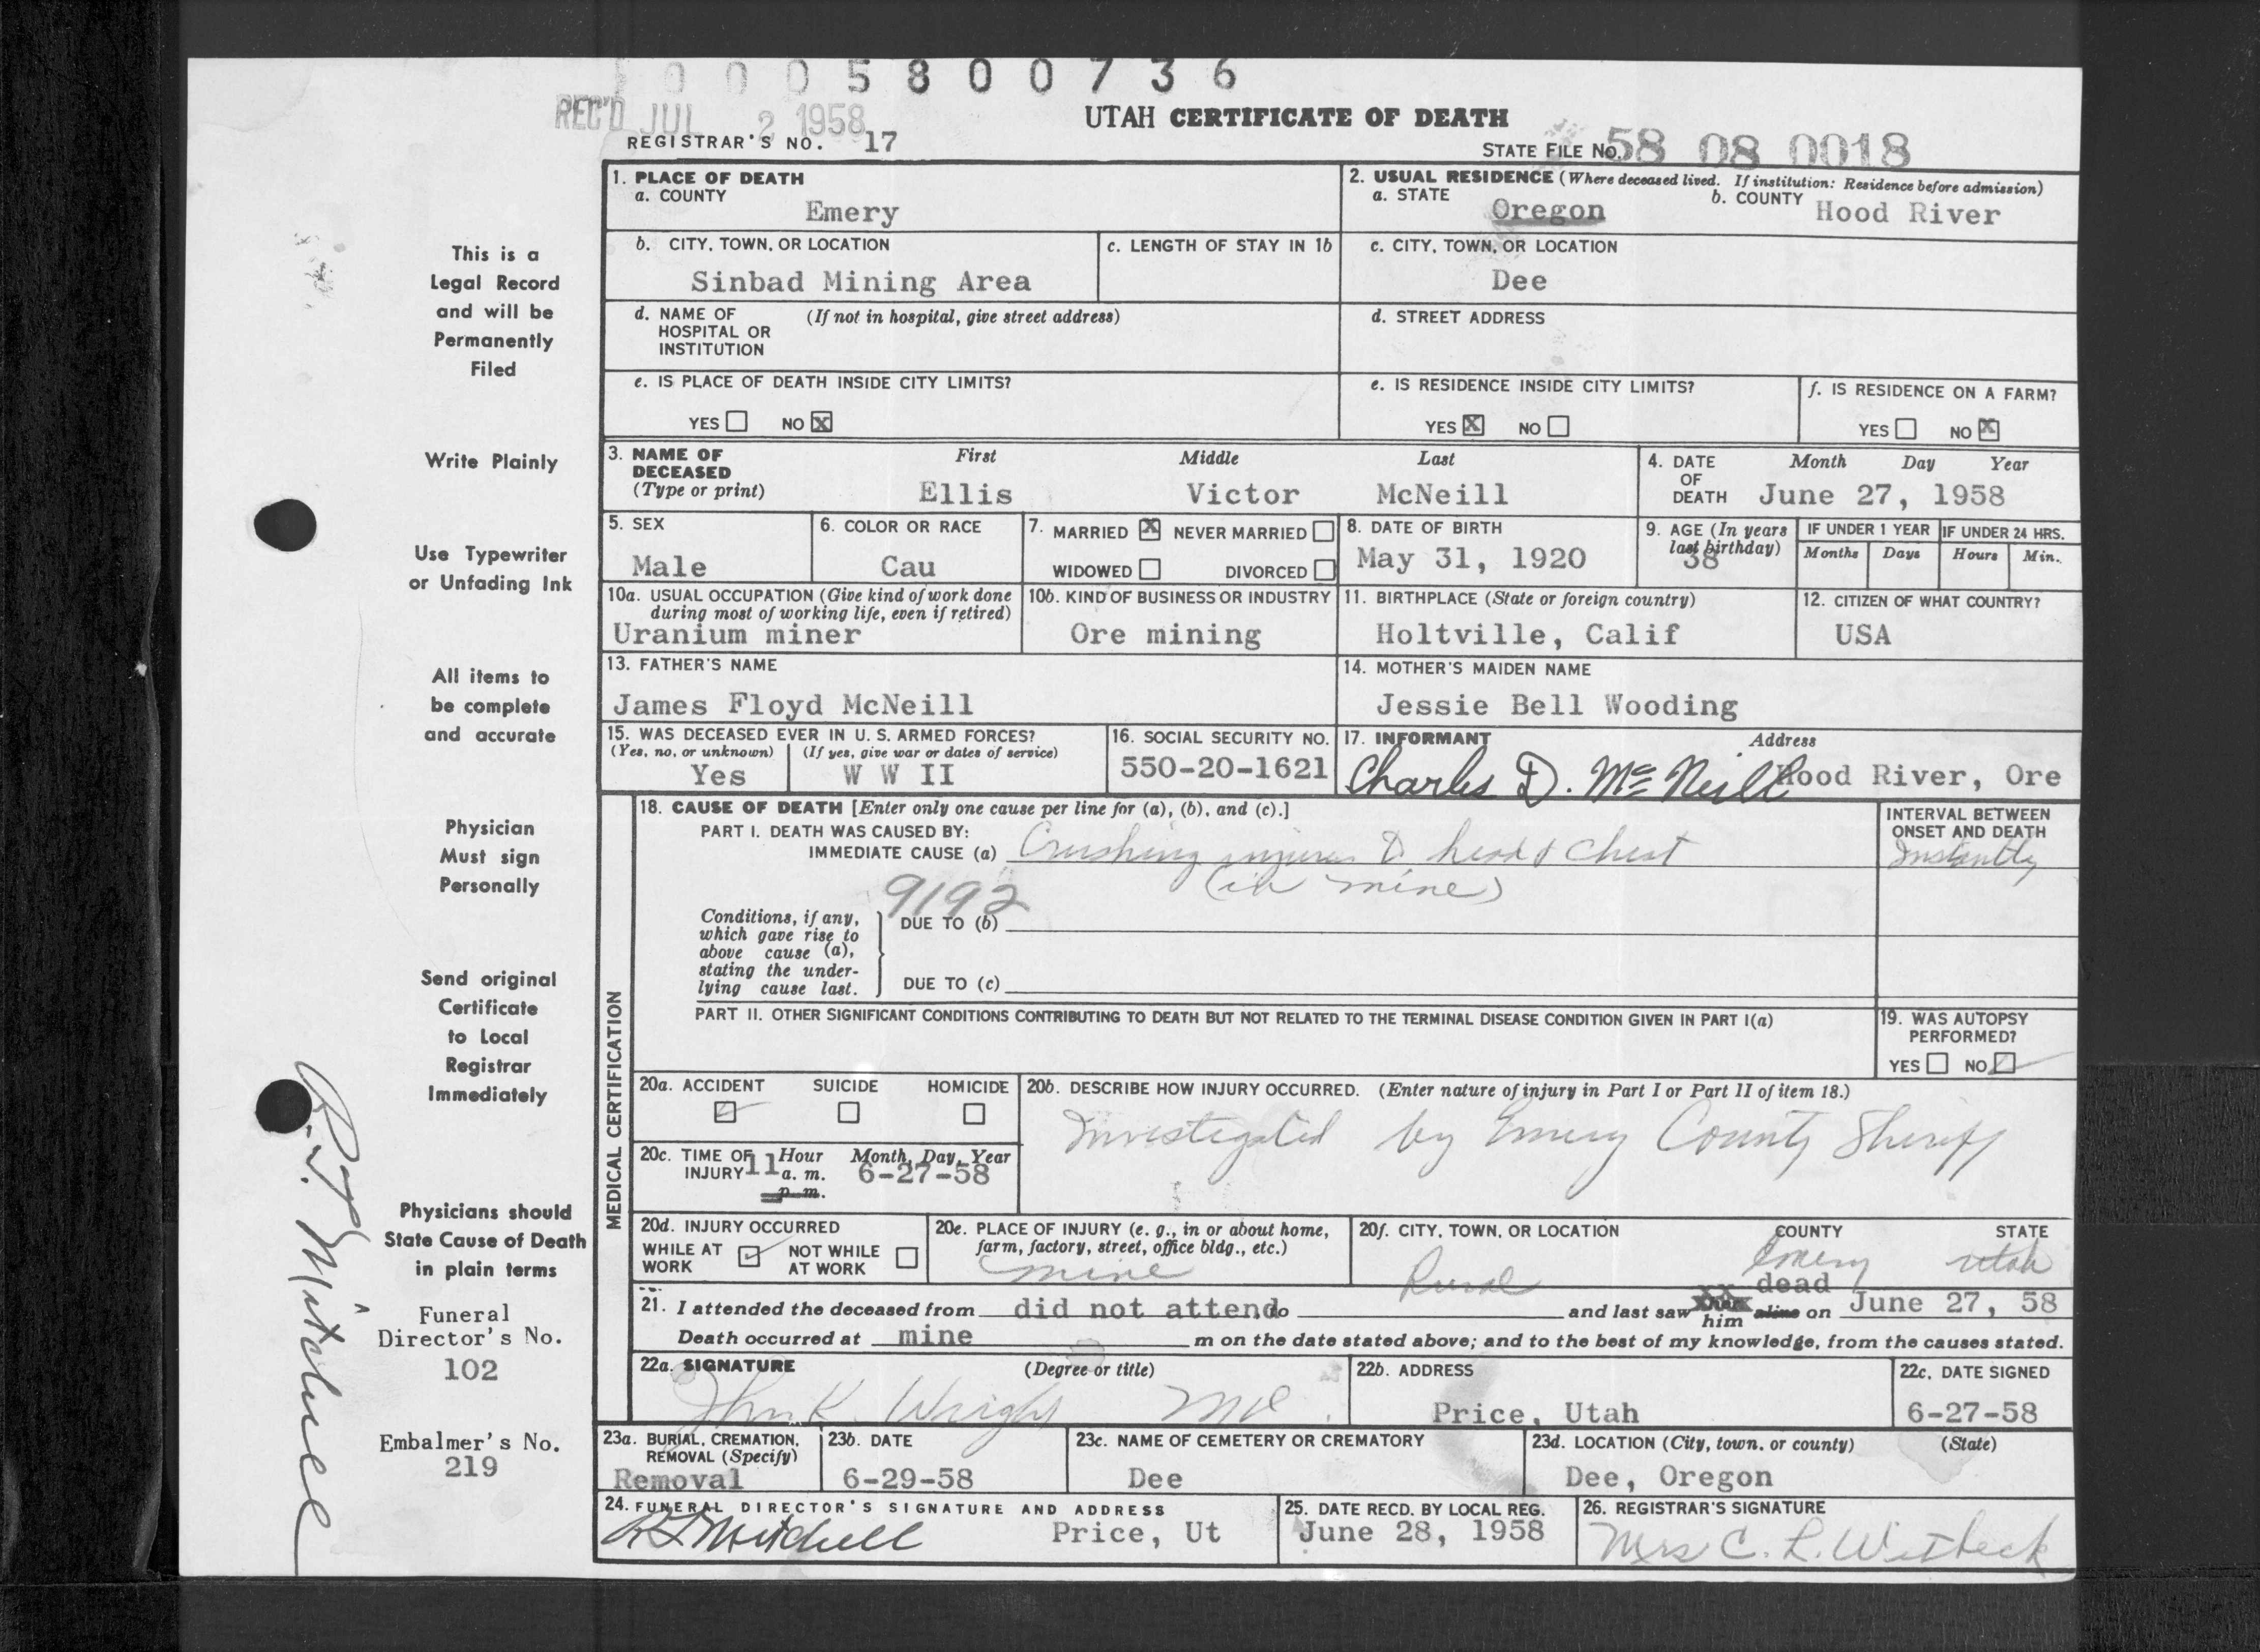 0 0 0 5 8 0 0 7 3 6
REC'D JUL 2 1958
UTAH CERTIFICATE OF DEATH
REGISTRAR'S NO. 17
STATE FILE No. 58 08 0018
This is a
Legal Record
and will be
Permanently
Filed
Write Plainly
Use Typewriter
or Unfading Ink
All items to
be complete
and accurate
Physician
Must sign
Personally
Send original
Certificate
to Local
Registrar
Immediately
Physicians should
State Cause of Death
in plain terms
Funeral
Director's No.
102
Embalmer's No.
219
R. J. Mitchell
1. PLACE OF DEATH
a. COUNTY
Emery
2. USUAL RESIDENCE (Where deceased lived. If institution: Residence before admission)
a. STATE Oregon b. COUNTY Hood River
b. CITY, TOWN, OR LOCATION
Sinbad Mining Area
c. LENGTH OF STAY IN 1b
c. CITY, TOWN, OR LOCATION
Dee
d. NAME OF HOSPITAL OR INSTITUTION (If not in hospital, give street address)
d. STREET ADDRESS
e. IS PLACE OF DEATH INSIDE CITY LIMITS?
YES NO X
e. IS RESIDENCE INSIDE CITY LIMITS?
YES X NO
f. IS RESIDENCE ON A FARM?
YES NO X
3. NAME OF DECEASED (Type or print)
First Middle Last
Ellis Victor McNeill
4. DATE OF DEATH
Month Day Year
June 27, 1958
5. SEX
Male
6. COLOR OR RACE
Cau
7. MARRIED X NEVER MARRIED
WIDOWED DIVORCED
8. DATE OF BIRTH
May 31, 1920
9. AGE (In years last birthday)
38
IF UNDER 1 YEAR
Months Days
IF UNDER 24 HRS.
Hours Min.
10a. USUAL OCCUPATION (Give kind of work done during most of working life, even if retired)
Uranium miner
10b. KIND OF BUSINESS OR INDUSTRY
Ore mining
11. BIRTHPLACE (State or foreign country)
Holtville, Calif
12. CITIZEN OF WHAT COUNTRY?
USA
13. FATHER'S NAME
James Floyd McNeill
14. MOTHER'S MAIDEN NAME
Jessie Bell Wooding
15. WAS DECEASED EVER IN U. S. ARMED FORCES?
(Yes, no, or unknown) (If yes, give war or dates of service)
Yes W W II
16. SOCIAL SECURITY NO.
550-20-1621
17. INFORMANT Address
Charles D. McNeill Hood River, Ore
MEDICAL CERTIFICATION
18. CAUSE OF DEATH [Enter only one cause per line for (a), (b), and (c).]
PART I. DEATH WAS CAUSED BY:
IMMEDIATE CAUSE (a) Crushing injuries to head & chest
(in mine)
INTERVAL BETWEEN ONSET AND DEATH
Instantly
9192
Conditions, if any, which gave rise to above cause (a), stating the underlying cause last.
DUE TO (b)
DUE TO (c)
PART II. OTHER SIGNIFICANT CONDITIONS CONTRIBUTING TO DEATH BUT NOT RELATED TO THE TERMINAL DISEASE CONDITION GIVEN IN PART I(a)
19. WAS AUTOPSY PERFORMED?
YES NO ✓
20a. ACCIDENT SUICIDE HOMICIDE
✓
20b. DESCRIBE HOW INJURY OCCURRED. (Enter nature of injury in Part I or Part II of item 18.)
Investigated by Emery County Sheriff
20c. TIME OF INJURY
Hour Month, Day, Year
11 a. m. 6-27-58
p. m.
20d. INJURY OCCURRED
WHILE AT WORK ✓ NOT WHILE AT WORK
20e. PLACE OF INJURY (e. g., in or about home, farm, factory, street, office bldg., etc.)
mine
20f. CITY, TOWN, OR LOCATION COUNTY STATE
Rural Emery Utah
21. I attended the deceased from did not attend to and last saw him alive dead on June 27, 58
Death occurred at mine m on the date stated above; and to the best of my knowledge, from the causes stated.
22a. SIGNATURE (Degree or title)
John K. Wright MD.
22b. ADDRESS
Price, Utah
22c. DATE SIGNED
6-27-58
23a. BURIAL, CREMATION, REMOVAL (Specify)
Removal
23b. DATE
6-29-58
23c. NAME OF CEMETERY OR CREMATORY
Dee
23d. LOCATION (City, town, or county) (State)
Dee, Oregon
24. FUNERAL DIRECTOR'S SIGNATURE AND ADDRESS
R J Mitchell Price, Ut
25. DATE RECD. BY LOCAL REG.
June 28, 1958
26. REGISTRAR'S SIGNATURE
Mrs C. L. Witbeck